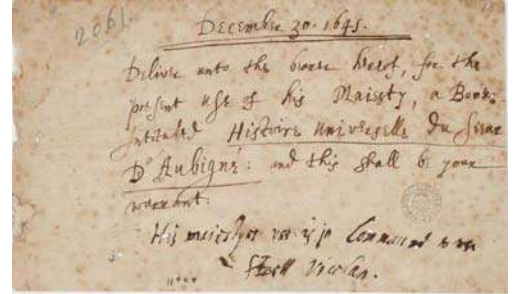 2061.
December 30. 1645.
Deliver unto the bearer hereof, for the
present use of his Maiesty, a Booke
Intituled Histoire Universelle du Sieur
D'Aubigné: and this shall be your
warrant.
His